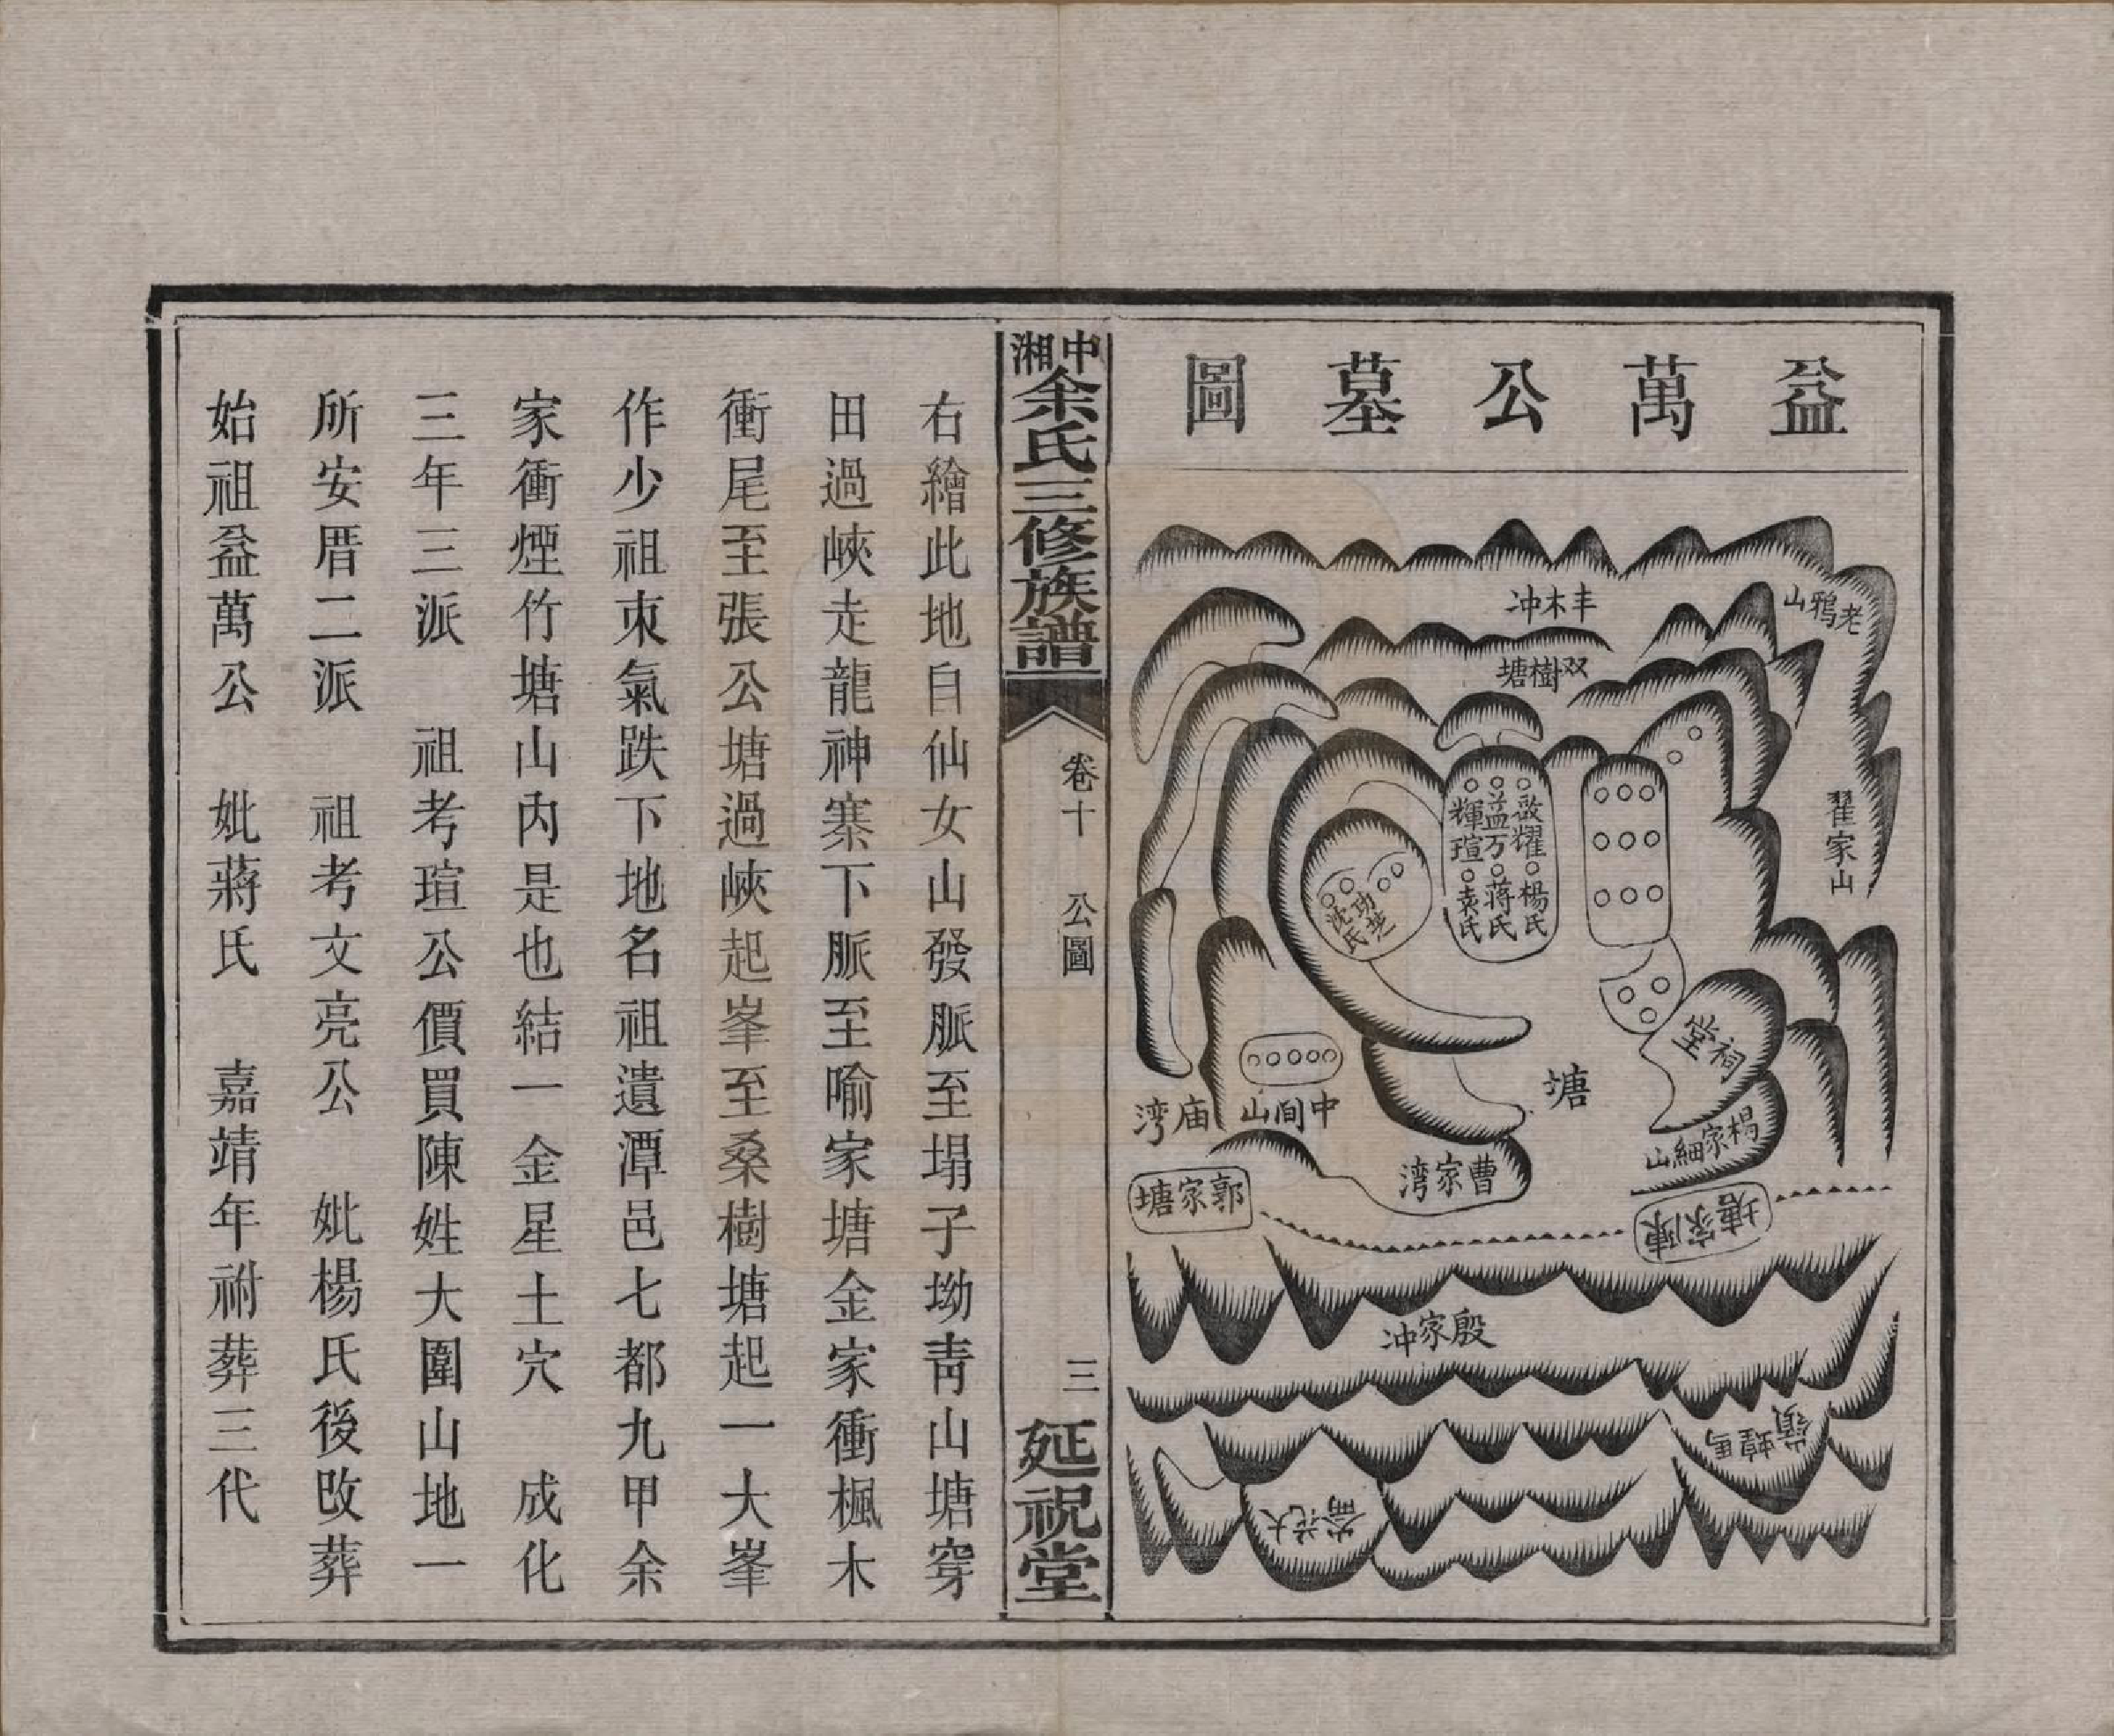 益萬公墓圖
老鴉山
丰木冲
双樹塘
翟家山
啟耀 楊氏
益万 蒋氏
輝瑄 袁氏
功
沈氏
祠堂
塘
楊家細山
中间山
庙湾
曹家湾
郭家塘
陳家塘
殷家冲
馬蝗嶺
大花崙
中湘
余氏三修族譜
卷十 公圖
三
延祝堂
右繪此地自仙女山發脈至塌子坳青山塘穿
田過峽走龍神寨下脈至喻家塘金家衝楓木
衝尾至張公塘過峽起峯至桑樹塘起一大峯
作少祖束氣跌下地名祖遺潭邑七都九甲余
家衝煙竹塘山內是也結一金星土穴 成化
三年三派 祖考瑄公價買陳姓大圍山地一
所安厝二派 祖考文亮公 妣楊氏後改葬
始祖益萬公 妣蔣氏 嘉靖年祔葬三代